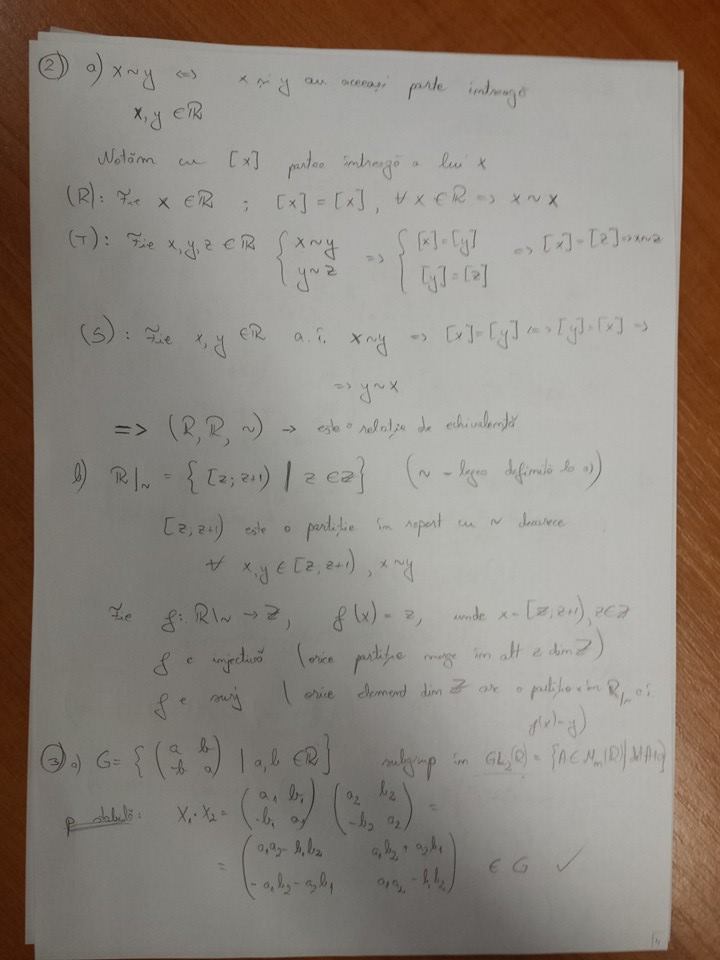 2) a) x~y <=> x și y au aceeași parte întreagă
x, y ∈ ℝ
Notăm cu [x] partea întreagă a lui x
(R): Fie x ∈ ℝ ; [x] = [x], ∀ x ∈ ℝ => x ~ x
(T): Fie x, y, z ∈ ℝ { x~y y~z => { [x]=[y] [y]=[z] => [x]=[z] => x~z
(S): Fie x, y ∈ ℝ a.î. x~y => [x]=[y] <=> [y]=[x] =>
=> y~x
=> (ℝ, ℝ, ~) → este o relație de echivalență
b) ℝ|~ = { [z; z+1) | z ∈ ℤ } (~ - legea definită la a))
[z, z+1) este o partiție în raport cu ~ deoarece
∀ x, y ∈ [z, z+1), x~y
Fie f: ℝ|~ → ℤ, f(x) = z, unde x = [z, z+1), z ∈ ℤ
f e injectivă (orice partiție merge în alt z din ℤ)
f e surj (orice element din ℤ are o partiție x în ℝ|~ a.î.
f(x)=y)
3) a) G = { (a b -b a) | a, b ∈ ℝ } subgrup în GL₂(ℝ) = {A ∈ Mₘ(ℝ) |
p. stabilă: X₁ · X₂ = (a₁ b₁ -b₁ a₁) (a₂ b₂ -b₂ a₂) =
= (a₁a₂ - b₁b₂ a₁b₂ + a₂b₁ -a₁b₂ - a₂b₁ a₁a₂ - b₁b₂) ∈ G ✓